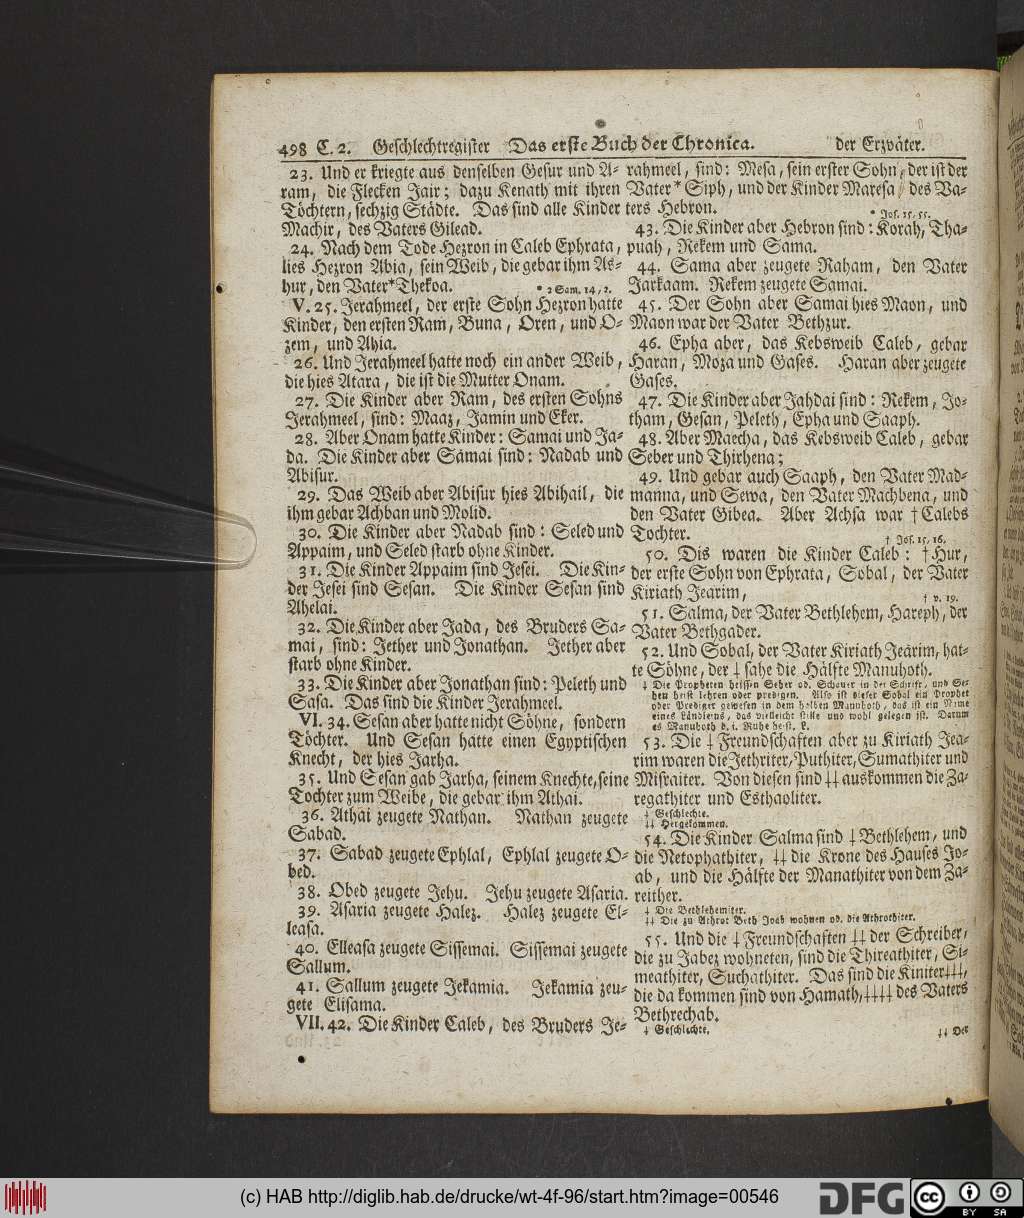 498 C. 2. Geschlechtregister Das erste Buch der Chronica. der Erzväter.
23. Und er kriegte aus denselben Gesur und A-
ram, die Flecken Jair; dazu Kenath mit ihren
Töchtern, sechzig Städte. Das sind alle Kinder
Machir, des Vaters Gilead.
24. Nach dem Tode Hezron in Caleb Ephrata,
lies Hezron Abia, sein Weib, die gebar ihm As-
hur, den Vater*Thekoa. * 2 Sam. 14, 2.
V. 25. Jerahmeel, der erste Sohn Hezron hatte
Kinder, den ersten Ram, Buna, Oren, und O-
zem, und Ahia.
26. Und Jerahmeel hatte noch ein ander Weib,
die hies Atara, die ist die Mutter Onam.
27. Die Kinder aber Ram, des ersten Sohns
Jerahmeel, sind: Maaz, Jamin und Eker.
28. Aber Onam hatte Kinder: Samai und Ja-
da. Die Kinder aber Samai sind: Nadab und
Abisur.
29. Das Weib aber Abisur hies Abihail, die
ihm gebar Achban und Molid.
30. Die Kinder aber Nadab sind: Seled und
Appaim, und Seled starb ohne Kinder.
31. Die Kinder Appaim sind Jesei. Die Kin-
der Jesei sind Sesan. Die Kinder Sesan sind
Ahelai.
32. Die Kinder aber Jada, des Bruders Sa-
mai, sind: Jether und Jonathan. Jether aber
starb ohne Kinder.
33. Die Kinder aber Jonathan sind: Peleth und
Sasa. Das sind die Kinder Jerahmeel.
VI. 34. Sesan aber hatte nicht Söhne, sondern
Töchter. Und Sesan hatte einen Egyptischen
Knecht, der hies Jarha.
35. Und Sesan gab Jarha, seinem Knechte, seine
Tochter zum Weibe, die gebar ihm Athai.
36. Athai zeugete Nathan. Nathan zeugete
Sabad.
37. Sabad zeugete Ephlal, Ephlal zeugete O-
bed.
38. Obed zeugete Jehu. Jehu zeugete Asaria.
39. Asaria zeugete Halez. Halez zeugete El-
leasa.
40. Elleasa zeugete Sissemai. Sissemai zeugete
Sallum.
41. Sallum zeugete Jekamia. Jekamia zeu-
gete Elisama.
VII. 42. Die Kinder Caleb, des Bruders Je-
rahmeel, sind: Mesa, sein erster Sohn, der ist der
Vater* Siph, und der Kinder Maresa, des Va-
ters Hebron. * Jos. 15, 55.
43. Die Kinder aber Hebron sind: Korah, Tha-
puah, Rekem und Sama.
44. Sama aber zeugete Raham, den Vater
Jarkaam. Rekem zeugete Samai.
45. Der Sohn aber Samai hies Maon, und
Maon war der Vater Bethzur.
46. Epha aber, das Kebsweib Caleb, gebar
Haran, Moza und Gases. Haran aber zeugete
Gases.
47. Die Kinder aber Jahdai sind: Rekem, Jo-
tham, Gesan, Peleth, Epha und Saaph.
48. Aber Maecha, das Kebsweib Caleb, gebar
Seber und Thirhena;
49. Und gebar auch Saaph, den Vater Mad-
manna, und Sewa, den Vater Machbena, und
den Vater Gibea. Aber Achsa war † Calebs
Tochter. † Jos. 15, 16.
50. Dis waren die Kinder Caleb: † Hur,
der erste Sohn von Ephrata, Sobal, der Vater
Kiriath Jearim, † v. 19.
51. Salma, der Vater Bethlehem, Hareph, der
Vater Bethgader.
52. Und Sobal, der Vater Kiriath Jearim, hat-
te Söhne, der ‡ sahe die Hälfte Manuhoth.
‡ Die Propheten heissen Seher od. Schauer in der Schrift, und Se-
hen heist lehren oder predigen. Also ist dieser Sobal ein Prophet
oder Prediger gewesen in dem halben Manuhoth, das ist ein Name
eines Ländleins, das vielleicht stille und wohl gelegen ist. Darum
es Manuhoth d. i. Ruhe heist. L.
53. Die ‡ Freundschaften aber zu Kiriath Jea-
rim waren die Jethriter, Puthiter, Sumathiter und
Misraiter. Von diesen sind ‡‡ auskommen die Za-
regathiter und Esthaoliter.
‡ Geschlechte.
‡‡ Hergekommen.
54. Die Kinder Salma sind ‡ Bethlehem, und
die Netophathiter, ‡‡ die Krone des Hauses Jo-
ab, und die Hälfte der Manathiter von dem Za-
reither.
‡ Die Bethlehemiter.
‡‡ Die zu Athrot Beth Joab wohnen od. die Athrothiter.
55. Und die ‡ Freundschaften ‡‡ der Schreiber,
die zu Jabez wohneten, sind die Thireathiter, Si-
meathiter, Suchathiter. Das sind die Kiniter‡‡‡,
die da kommen sind von Hamath,‡‡‡‡ des Vaters
Bethrechab.
‡ Geschlechte. ‡‡ Der
(c) HAB http://diglib.hab.de/drucke/wt-4f-96/start.htm?image=00546
DFG
cc BY SA